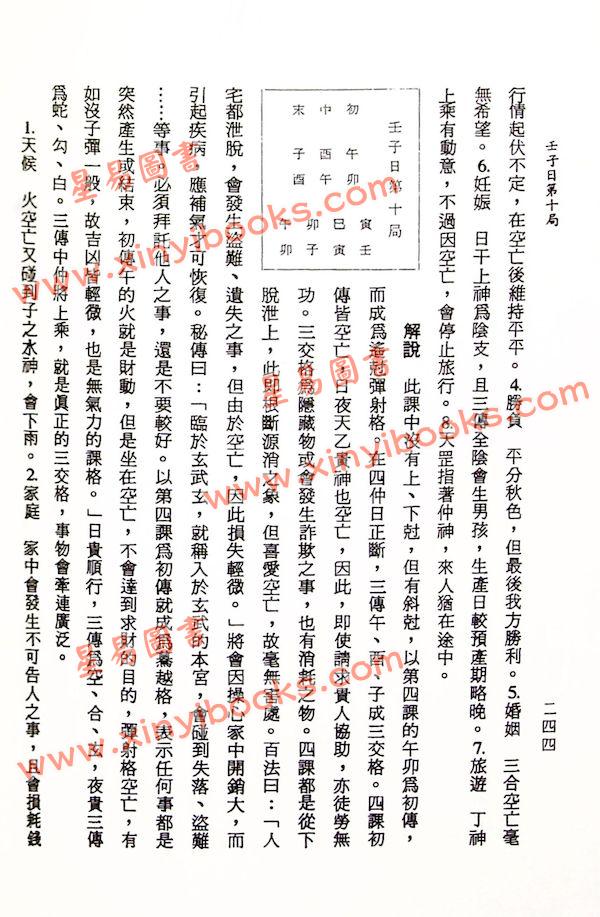 壬子日第十局
二四四
行情起伏不定，在空亡後維持平平。4.勝負　平分秋色，但最後我方勝利。5.婚姻　三合空亡毫
無希望。6.妊娠　日干上神爲陰支，且三傳全陰會生男孩，生產日較預產期略晚。7.旅遊　丁神
上乘有動意，不過因空亡，會停止旅行。8.天罡指著仲神，來人猶在途中。
壬子日第十局
初　午卯
中　酉午
末　子酉
寅壬
巳寅
卯子
午卯
解說　此課中沒有上、下尅，但有斜尅，以第四課的午卯爲初傳，
而成爲遙尅彈射格。在四仲日正斷，三傳午、酉、子成三交格。四課初
傳皆空亡，日夜天乙貴神也空亡，因此，即使請求貴人協助，亦徒勞無
功。三交格爲隱藏物或會發生詐欺之事，也有消耗之物。四課都是從下
脫泄上，此即根斷源消之象，但喜愛空亡，故毫無害處。百法曰：「人
宅都泄脫，會發生盜難、遺失之事，但由於空亡，因此損失輕微。」將會因操心家中開銷大，而
引起疾病，應補氣才可恢復。秘傳曰：「臨於玄武玄，就稱入於玄武的本宮，會碰到失落、盜難
……等事。必須拜託他人之事，還是不要較好。以第四課爲初傳就成爲驀越格，表示任何事都是
突然產生或結束，初傳午的火就是財動，但是坐在空亡，不會達到求財的目的，彈射格空亡，有
如沒子彈一般，故吉凶皆輕微，也是無氣力的課格。」日貴順行，三傳爲空、合、玄，夜貴三傳
爲蛇、勾、白。三傳中仲將上乘，就是眞正的三交格，事物會牽連廣泛。
1.天候　火空亡又碰到子之水神，會下雨。2.家庭　家中會發生不可告人之事，且會損耗錢
星易圖書
www.xinyibooks.com
星易圖書
www.xinyibooks.com
星易圖書
www.xinyibooks.com
星易圖書
www.xinyibooks.com